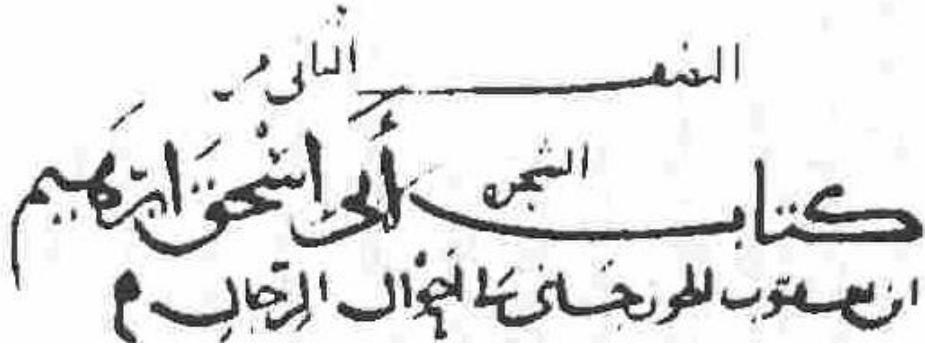 النصف الثاني من
كتاب الشجره أبي اسحق ابرهيم
ابن يعقوب الجوزجاني في احوال الرجال